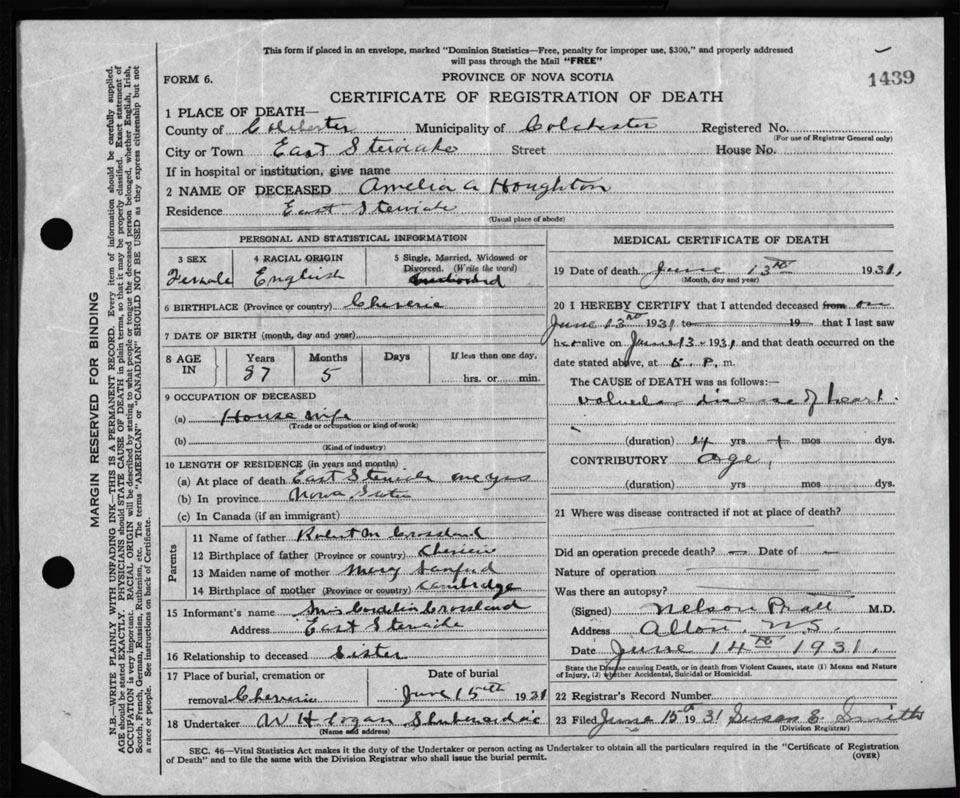 This form if placed in an envelope, marked "Dominion Statistics—Free, penalty for improper use, $300," and properly addressed
will pass through the Mail "FREE"
FORM 6.
PROVINCE OF NOVA SCOTIA
1439
CERTIFICATE OF REGISTRATION OF DEATH
1 PLACE OF DEATH—
County of Colchester Municipality of Colchester Registered No.
(For use of Registrar General only)
City or Town East Stewiacke Street House No.
If in hospital or institution, give name
2 NAME OF DECEASED Amelia A Houghton
Residence East Stewiacke
(Usual place of abode)
PERSONAL AND STATISTICAL INFORMATION
3 SEX
Female
4 RACIAL ORIGIN
English
5 Single, Married, Widowed or
Divorced. (Write the word)
6 BIRTHPLACE (Province or country) Cheverie
7 DATE OF BIRTH (month, day and year)
8 AGE IN
Years Months Days If less than one day,
87 5 hrs. or min.
9 OCCUPATION OF DECEASED
(a) House wife
(Trade or occupation or kind of work)
(b)
(Kind of industry)
10 LENGTH OF RESIDENCE (in years and months)
(a) At place of death East Stewiacke
(b) In province Nova Scotia
(c) In Canada (if an immigrant)
Parents
11 Name of father Robert Crossland
12 Birthplace of father (Province or country) Cheverie
13 Maiden name of mother Mary Sanford
14 Birthplace of mother (Province or country) Cambridge
15 Informant's name Mrs Crossland
Address East Stewiacke
16 Relationship to deceased Sister
17 Place of burial, cremation or
removal Cheverie
Date of burial
June 15th 1931
18 Undertaker W H Logan Shubenacadie
(Name and address)
MEDICAL CERTIFICATE OF DEATH
19 Date of death June 13th 1931,
(Month, day and year)
20 I HEREBY CERTIFY that I attended deceased from on
June 13th 1931 to 19 that I last saw
her alive on June 13 1931 and that death occurred on the
date stated above, at 5. P. m.
The CAUSE OF DEATH was as follows:—
disease of heart.
(duration) yrs mos dys.
CONTRIBUTORY age,
(duration) yrs mos dys.
21 Where was disease contracted if not at place of death?
Did an operation precede death? — Date of —
Nature of operation
Was there an autopsy?
(Signed) Nelson Pratt M.D.
Address Alton, N.S.
Date June 14th 1931.
State the Disease causing Death, or in death from Violent Causes, state (1) Means and Nature
of Injury, (2) whether Accidental, Suicidal or Homicidal.
22 Registrar's Record Number
23 Filed June 15th 1931 Susan E. Smith
(Division Registrar)
SEC. 46—Vital Statistics Act makes it the duty of the Undertaker or person acting as Undertaker to obtain all the particulars required in the "Certificate of Registration
of Death" and to file the same with the Division Registrar who shall issue the burial permit.
(OVER)
MARGIN RESERVED FOR BINDING
N.B.—WRITE PLAINLY WITH UNFADING INK—THIS IS A PERMANENT RECORD. Every item of information should be carefully supplied.
AGE should be stated EXACTLY. PHYSICIANS should STATE CAUSE OF DEATH in plain terms, so that it may be properly classified. Exact statement of
OCCUPATION is very important. RACIAL ORIGIN will be described by stating to what people or tongue the deceased person belonged, whether English, Irish,
Scotch, French, German, Russian, Ruthenian, etc. The terms "AMERICAN" or "CANADIAN" SHOULD NOT BE USED as they express citizenship but not
a race or people. See instructions on back of Certificate.